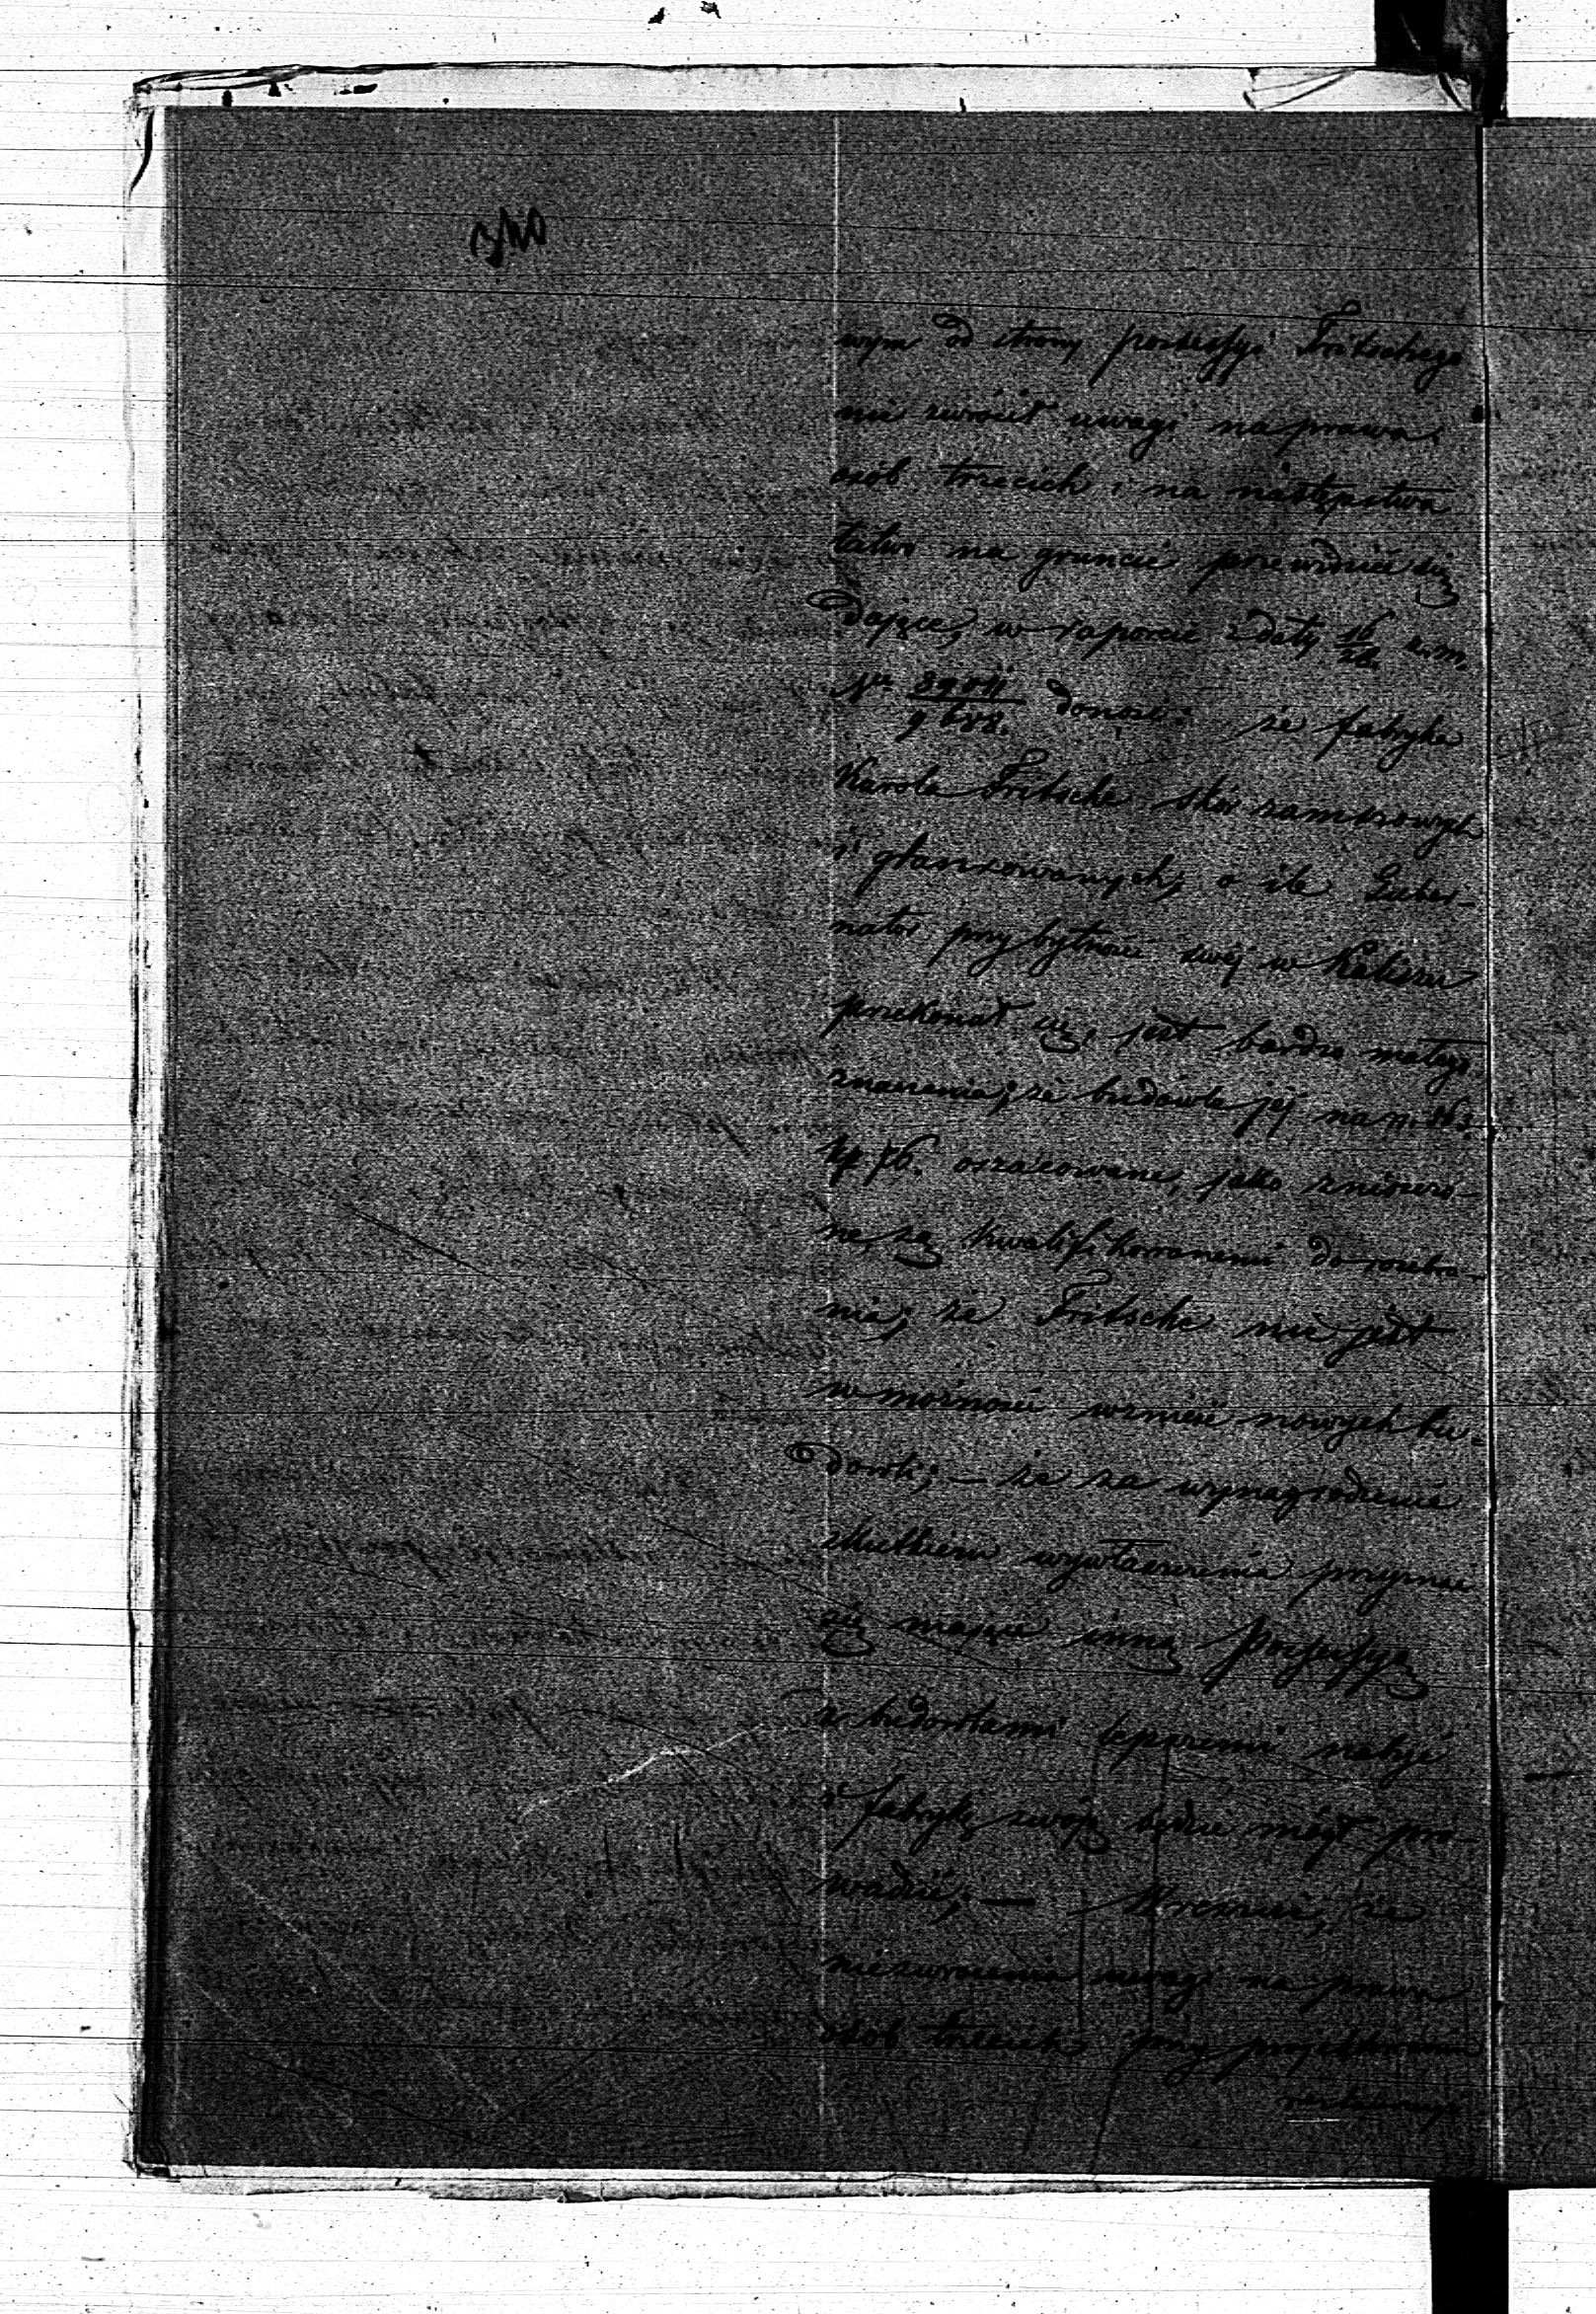 340
wym od strony possessyi Fritschego
nie zwrócił uwagi na prawa
osób trzecich i na następstwa
łatwo na gruncie przewidzieć się
dające, w raporcie z daty 16/28. z. m.
Nr donosi: że fabryka
Karola Fritsche skór zamszowych
i glansowanych, o ile Guber-
nator przy bytności swéj w Kaliszu
przekonał się, jest bardzo małego
znaczenia; że budowle jéj na rs.
kp. 76. oszacowane, jako zniszczo-
ne, są kwalifikowanemi do rozebra-
nia; że Fritsche nie jest
w możności wznieść nowych bu-
dowli; — że za wynagrodzenie
skutkiem wywłaszczenia przyznać
się mające inną possessyą
z budowlami lepszemi nabyć
i fabrykę swoję będzie mógł pro-
wadzić; — Wreszcie, że
niezwrócenia uwagi na prawa
osób trzecich przy projektowaniu